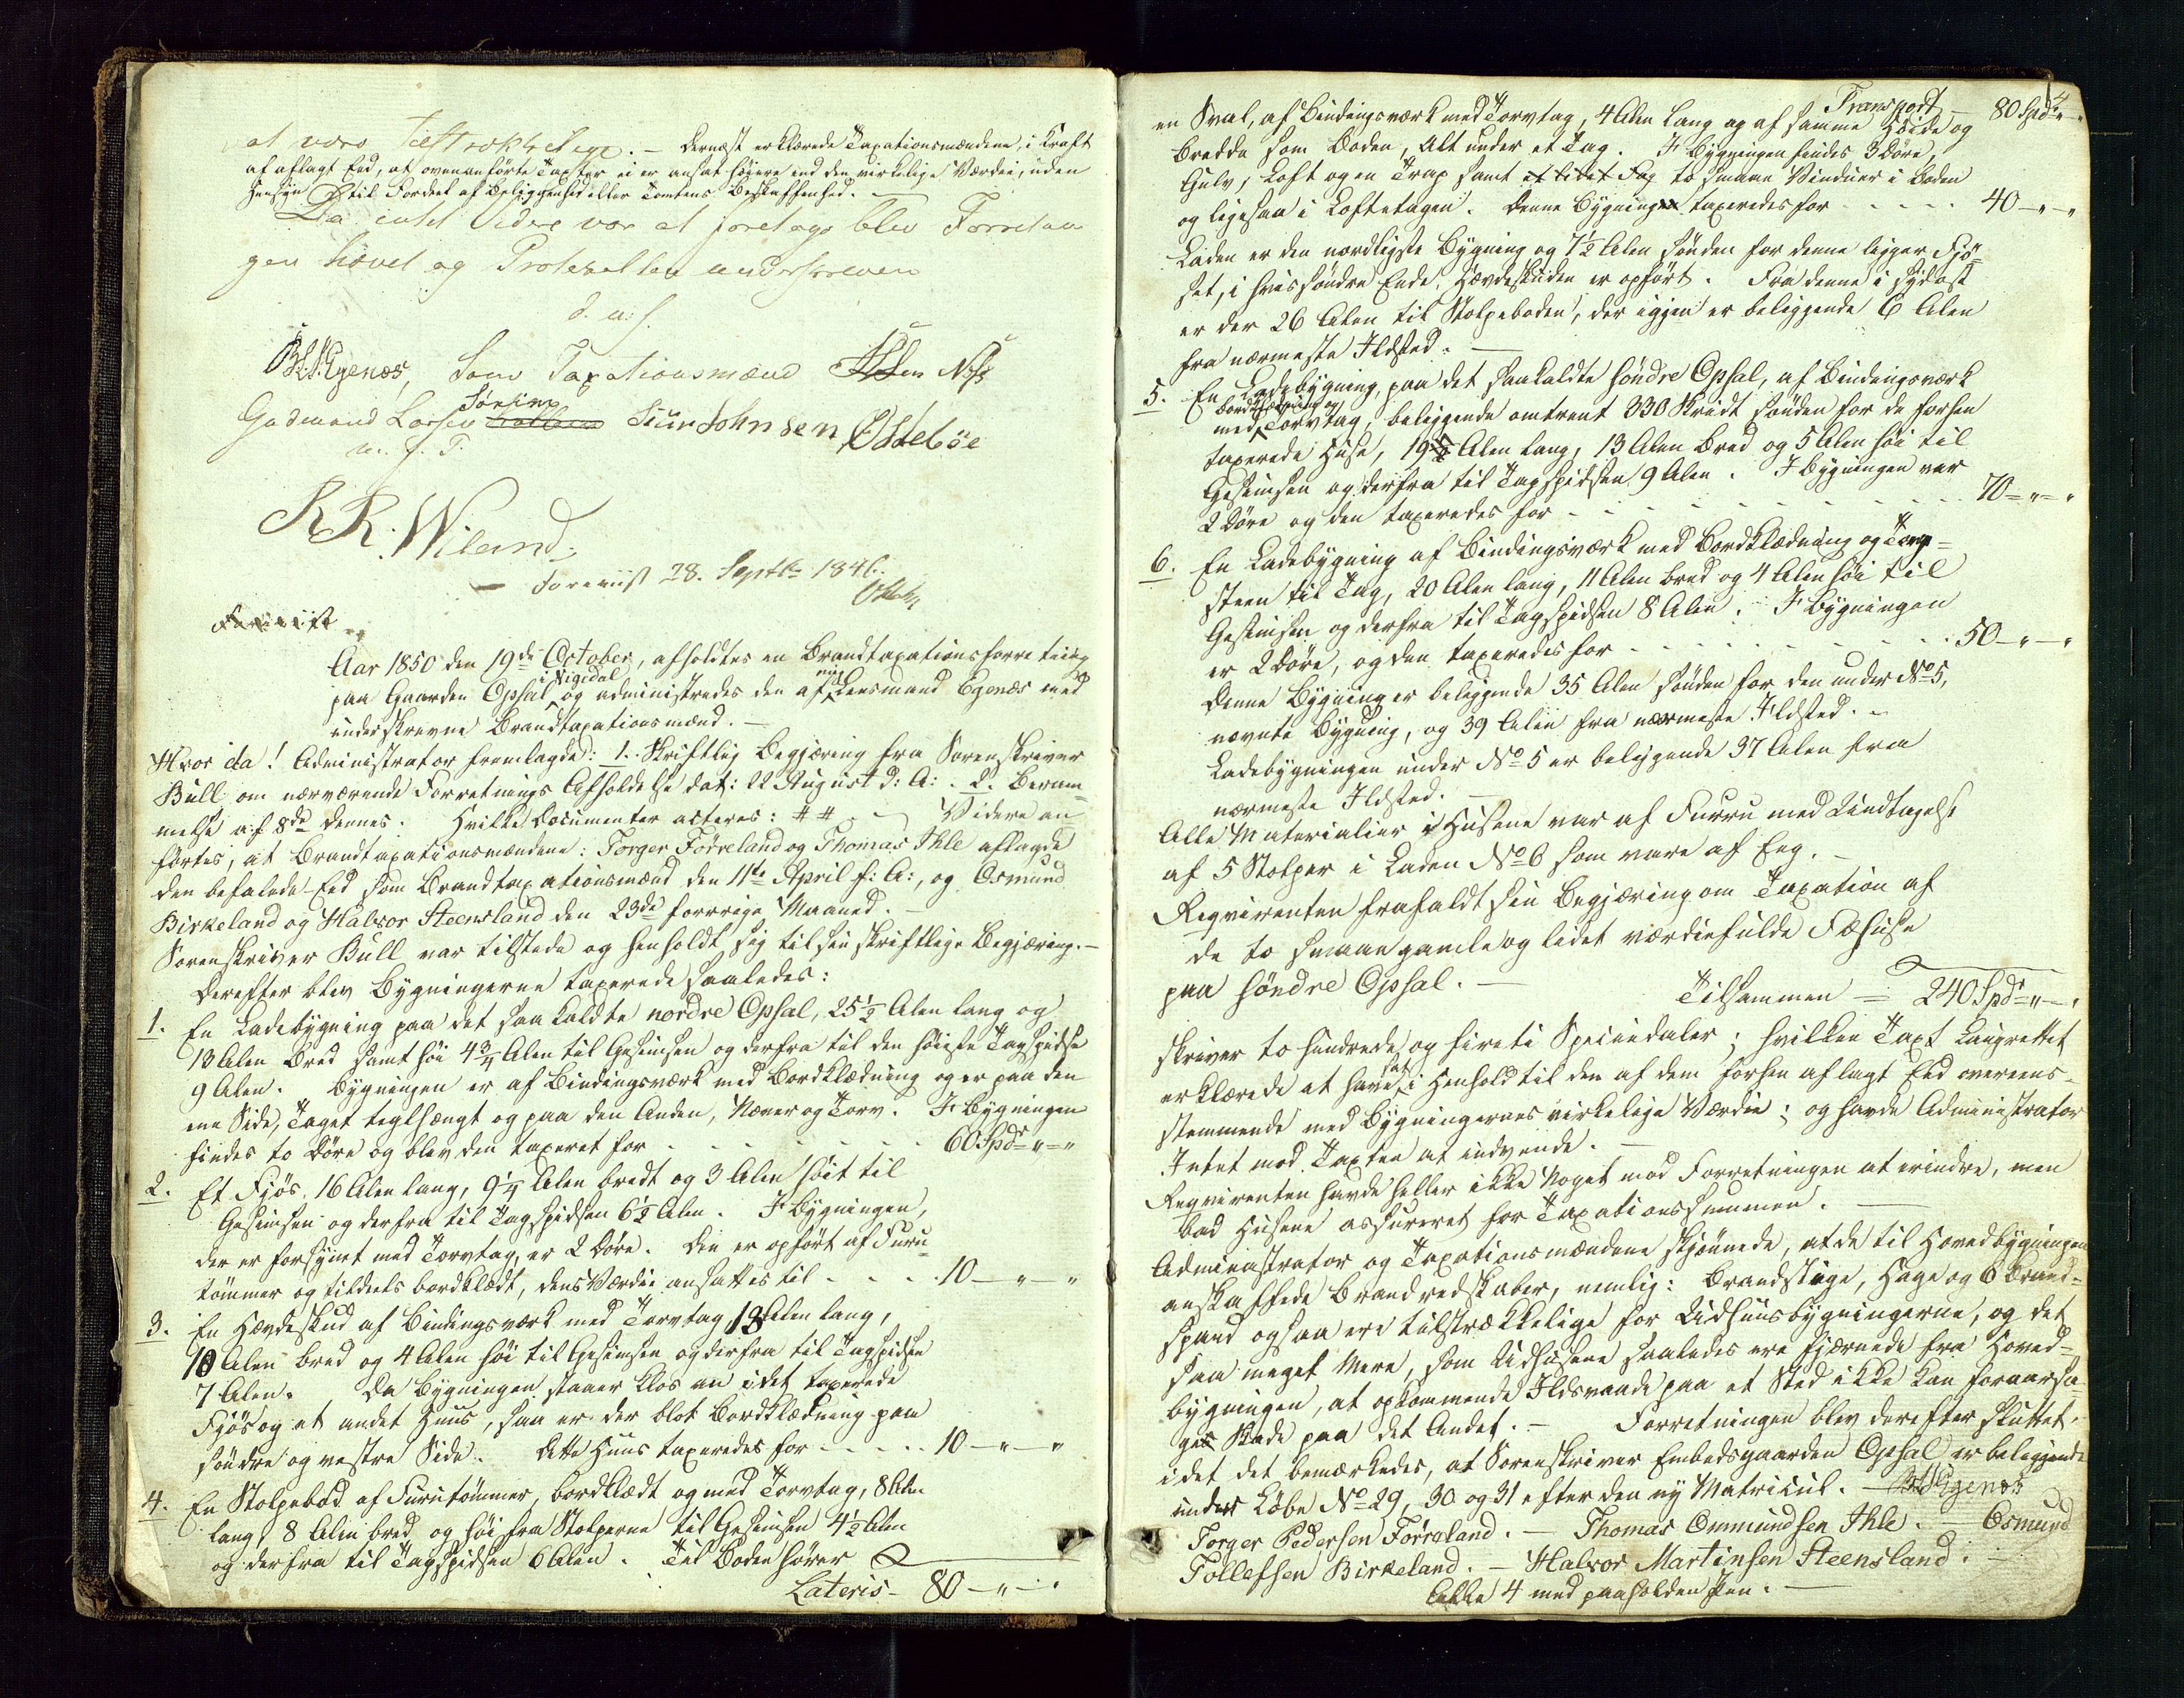 at være tilstrækkelige. – Dernæst erklærede Taxationsmændene, i Kraft
af aflagt Eed, at ovenanførte Taxter ei er ansat høiere end den virkelige Værdie, uden
Hensyn til Fordeel af Beliggenhed eller Tomtens Beskaffenhed. –
Da intet Videre var at foretage blev Forretnin
gen hævet og Protokollen underskreven
d. u. s.
Egenæs, Som Taxationsmænd
Gudmund Larsen Søning Siur Johnsen Østebøe
m. f. P.
R R. Wiland
– Foreviist 28. Septbr 1846.
Foreviist
Aar 1850 den 19de October, afholdtes en Brandtaxationsforretning
paa Gaarden Opsal i Nigidal og administredes den af Lensmand Egenæs med
underskrevne Brandtaxationsmænd. –
Hvor da! Administrator fremlagde: 1. Skriftlig Begjæring fra Sorenskriver
Bull om nærværende Forretnings Afholdelse dat: 22 August d: A: . 2. Beram-
melse af 8de dennes. Hvilke Documenter acteres: ## – Videre an
førtes, at Brandtaxationsmændene: Torger Førreland og Thomas Ihle aflagde
den befalede Eed som Brandtaxationsmænd den 11te April f: A:, og Osmund
Birkeland og Halvor Steensland den 23de forrige Maaned. –
Sorenskriver Bull var tilstede og henholdt sig til sin skriftlige Begjæring. –
Derefter blev Bygningerne taxerede saaledes:
1. En Ladebygning paa det saakaldte nordre Opsal, 25½ Alen lang og
13 Alen bred samt høi 4¾ Alen til Gesimsen og derfra til den høieste Tagspidse
9 Alen. Bygningen er af Bindingsværk med Bordklædning og er paa den
ene Side, Taget teglhængt og paa den Anden, Næver og Torv. I Bygningen
findes to Døre og blev den taxeret for - - - - - - 60 Spdr „ – „
2. Et Fjøs 16 Alen lang, 9¼ Alen bredt og 3 Alen høit til
Gesimsen og derfra til Tagspidsen 6½ Alen. I Bygningen,
der er forsynet med Torvtag, er 2 Døre. Den er opført af Furu-
tømmer og tildeels bordklædt, dens Værdie ansattes til - - - - 10 – „ – „
3. En Hævdeskud af Bindingsværk med Torvtag 18 Alen lang,
10 Alen bred og 4 Alen høi til Gesimsen og derfra til Tagspidsen
7 Alen. Da Bygningen staaer klos an i det taxerede
Fjøs og et andet Huus, saa er der blot Bordklædning paa
søndre og vestre Side. Dette Huus taxeredes for - - - - - 10 – „ – „
4. En Stolpebod af Furutømmer, bordklædt og med Torvtag, 8 Alen
lang, 8 Alen bred og høi fra Stolperne til Gesimsen 4½ Alen
og derfra til Tagspidsen 6 Alen. Til Boden hører
Lateris – 80 – „ – „
4
Transport – 80 Spdr „ – „
en Sval, af Bindingsværk med Torvtag, 4 Alen lang og af samme Høide og
Bredde som Boden, Alt under et Tag. I Bygningen findes 3 Døre,
Gulv, Loft og en Trap samt et lidet Fag to smaae Vinduer i Boden
og ligesaa i Loftetagen. Denne Bygning taxeredes for - - - - - 40 – „ – „
Laden er den nordligste Bygning og 7½ Alen sønden for denne ligger Fjø-
set, i hvis søndre Ende, Hævdeskuden er opført. Fra denne i sydost
er der 26 Alen til Stolpeboden, der igjen er beliggende 6 Alen
fra nærmeste Ildsted. –
5. En Ladebygning, paa det saakaldte søndre Opsal, af Bindingsværk
med Bordklædning og Torvtag, beliggende omtrent 330 Skridt sønden for de forhen
taxerede Huse, 19½ Alen lang, 13 Alen bred og 5 Alen høi til
Gesimsen og derfra til Tagspidsen 9 Alen. I Bygningen var
2 Døre og den taxeredes for - - - - - - - - 70 – „ – „
6. En Ladebygning af Bindingsværk med Bordklædning og Torv-
steen til Tag, 20 Alen lang, 11 Alen bred og 4 Alen høi til
Gesimsen og derfra til Tagspidsen 8 Alen. I Bygningen
er 2 Døre, og den taxeredes for - - - - - - - - 50 – „ – „
Denne Bygning er beliggende 35 Alen sønden for den under No 5,
nævnte Bygning, og 39 Alen fra nærmeste Ildsted. –
Ladebygningen under No 5 er beliggende 37 Alen fra
nærmeste Ildsted. –
Alle Materialier i Husene var af Furru med Undtagelse
af 5 Stolper i Laden No 6 som vare af Eeg. –
Reqvirenten frafaldt sin Begjæring om Taxation af
de to smaae gamle og lidet værdiefulde Fæhuse
paa søndre Opsal. –
Tilsammen – 240 Spdr „ – „
skriver to hundrede og fireti Speciedaler; hvilken Taxt Laugrettet
erklærede at have sat i Henhold til den af dem forhen aflagt Eed overeens-
stemmende med Bygningernes virkelige Værdie; og havde Administrator
Intet mod Taxten at indvende. –
Reqvirenten havde heller ikke Noget mod Forretningen at erindre, men
bad Husene assureret for Taxationssummen. –
Administrator og Taxationsmændene skjønnede, at de til Hovedbygningen
anskaffede Brandredskaber, nemlig: Brandstige, Hage og 6 Brand-
spand ogsaa ere tilstrækkelige for Udhuusbygningerne, og det
saa meget mere, som Udhusene saaledes ere fjernede fra Hoved-
bygningen, at opkommende Ildsvaade paa et Sted ikke kan foraarsa-
ges Skade paa det Andet. – Forretningen blev derefter sluttet,
idet det bemærkedes, at Sorenskriver Embedsgaarden Opsal er beliggende
under Løbe No 29, 30 og 31 efter den ny Matricul. – Egenæs
Torger Pedersen Førreland. – Thomas Ommundsen Ihle. – Osmund
Tollefsen Birkeland. – Halvor Martinsen Steensland. –
Alle 4 med paaholden Pen. –